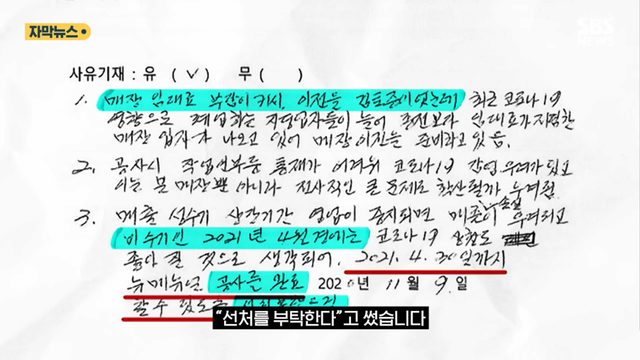 자막뉴스
SBS
NEWS
사유기재 : 유 ( V ) 무 ( )
1. 매장 임대료 부담이 커서, 이전을 검토중이었는데 최근 코로나19
영향으로 폐업하는 자영업자들이 늘어 종전보다 임대료가 저렴한
매장 입자가 나오고 있어 매장이전을 준비하고 있음.
2. 공사시 작업인부들 통제가 어려워 코로나19 감염 우려가 되고
이는 본 매장뿐 아니라 전사적인 큰 문제로 확산될까 우려됨
3. 매출 성수기 상당기간 영업이 중지되면 매출이 손실 우려되고
비수기인 2021년 4월경에는 코로나19 상황도
좋아 질 것으로 생각되어, 2021. 4. 30일까지
뉴메뉴얼 공사를 완료 2020년 11월 9일
할 수 있도록
"선처를 부탁한다"고 썼습니다